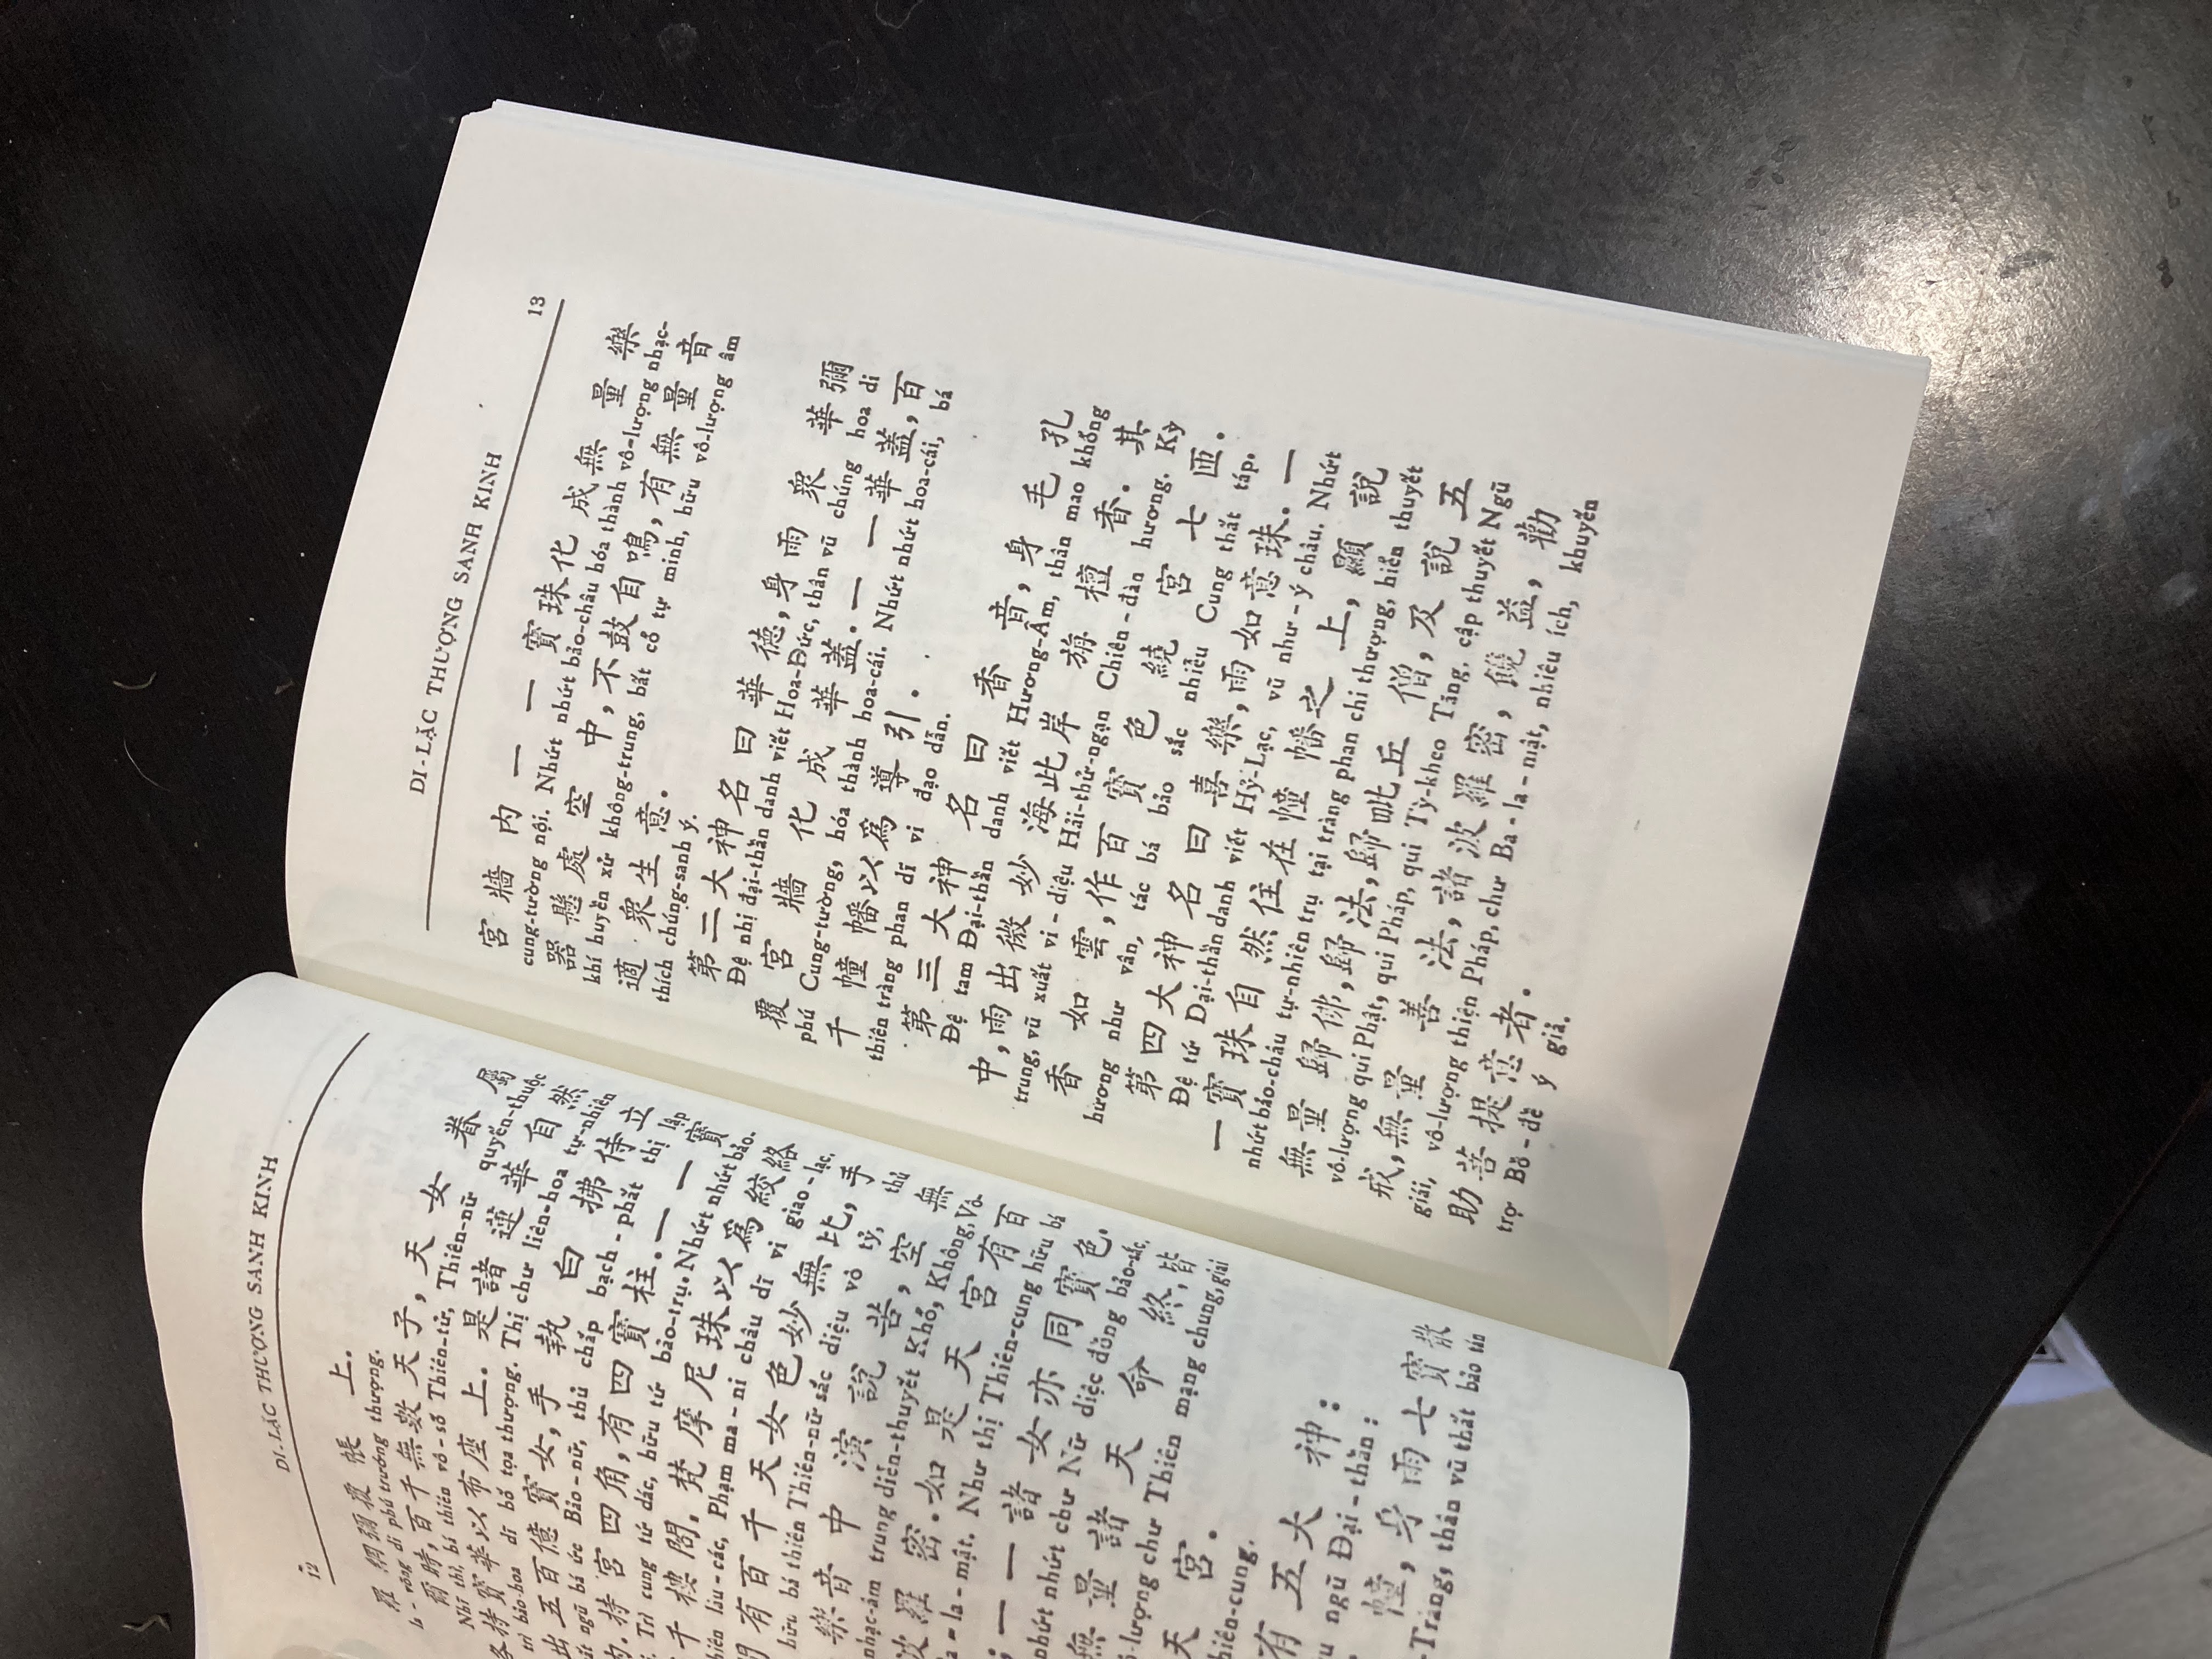 12
DI-LẶC THƯỢNG SANH KINH
羅 網 彌 覆 帳 上.
la-võng di phú trướng thượng.
爾時,百千無數天子,天女眷屬
Nhĩ thì, bá thiên vô-số Thiên-tử, Thiên-nữ quyến-thuộc
各持寶華以布座上.是諸蓮華自然
trì bảo-hoa dĩ bố tọa thượng. Thị chư liên-hoa tự-nhiên
出五百億寶女,手執白拂侍立
ngũ bá ức Bảo-nữ, thủ chấp bạch-phất thị lập
持宮四角,有四寶柱.一一寶
Trì cung tứ dác, hữu tứ bảo-trụ. Nhứt nhứt bảo.
千樓閣,梵摩尼珠以為絞絡
thiên lâu-các, Phạm ma-ni châu dĩ vi giao-lạc,
有百千天女色妙無比,手
hữu bá thiên Thiên-nữ sắc diệu vô tỷ, thủ
樂音中演說苦,空無
nhạc-âm trung diễn-thuyết Khổ, Không, Vô-
波羅密.如是天宮有百
la-mật. Như thị Thiên-cung hữu bá
一一諸女亦同寶色.
nhứt nhứt chư Nữ diệc đồng bảo-sắc.
無量諸天命終,皆
lượng chư Thiên mạng chung, giai
天宮.
Thiên-cung.
有五大神:
ngũ Đại-thần:
幢,身雨七寶散
Tràng, thân vũ thất bảo tán
DI-LẶC THƯỢNG SANH KINH
13
宮牆內一一寶珠化成無量樂
cung-tường nội. Nhứt nhứt bảo-châu hóa thành vô-lượng nhạc-
器懸處空中,不鼓自鳴,有無量音
khí huyền xử không-trung, bất cổ tự minh, hữu vô-lượng âm
適衆生意.
thích chúng-sanh ý.
第二大神名曰華德,身雨衆華彌
Đệ nhị đại-thần danh viết Hoa-Đức, thân vũ chúng hoa di
覆宮牆化成華蓋.一一華蓋,百
phú Cung-tường, hóa thành hoa-cái. Nhứt nhứt hoa-cái, bá
千幢幡以為導引.
thiên tràng phan dĩ vi đạo dẫn.
第三大神名曰香音,身毛孔
Đệ tam Đại-thần danh viết Hương-Âm, thân mao khổng
中,雨出微妙海此岸旃檀香.其
trung, vũ xuất vi-diệu Hải-thử-ngạn Chiên-đàn hương. Kỳ
香如雲,作百寶色繞宮七匝.
hương như vân, tác bá bảo sắc nhiễu Cung thất táp.
第四大神名曰喜樂,雨如意珠.一
Đệ tứ Đại-thần danh viết Hỷ-Lạc, vũ như-ý châu. Nhứt
一寶珠自然住在幢幡之上,顯說
nhứt bảo-châu tự-nhiên trụ tại tràng phan chi thượng, hiển thuyết
無量歸佛,歸法,歸毗丘僧,及說五
vô-lượng qui Phật, qui Pháp, qui Tỳ-kheo Tăng, cập thuyết Ngũ
戒,無量善法,諸波羅密,饒益,勸
giái, vô-lượng thiện Pháp, chư Ba-la-mật, nhiêu ích, khuyến
助菩提意者.
trợ Bồ-đề ý giả.